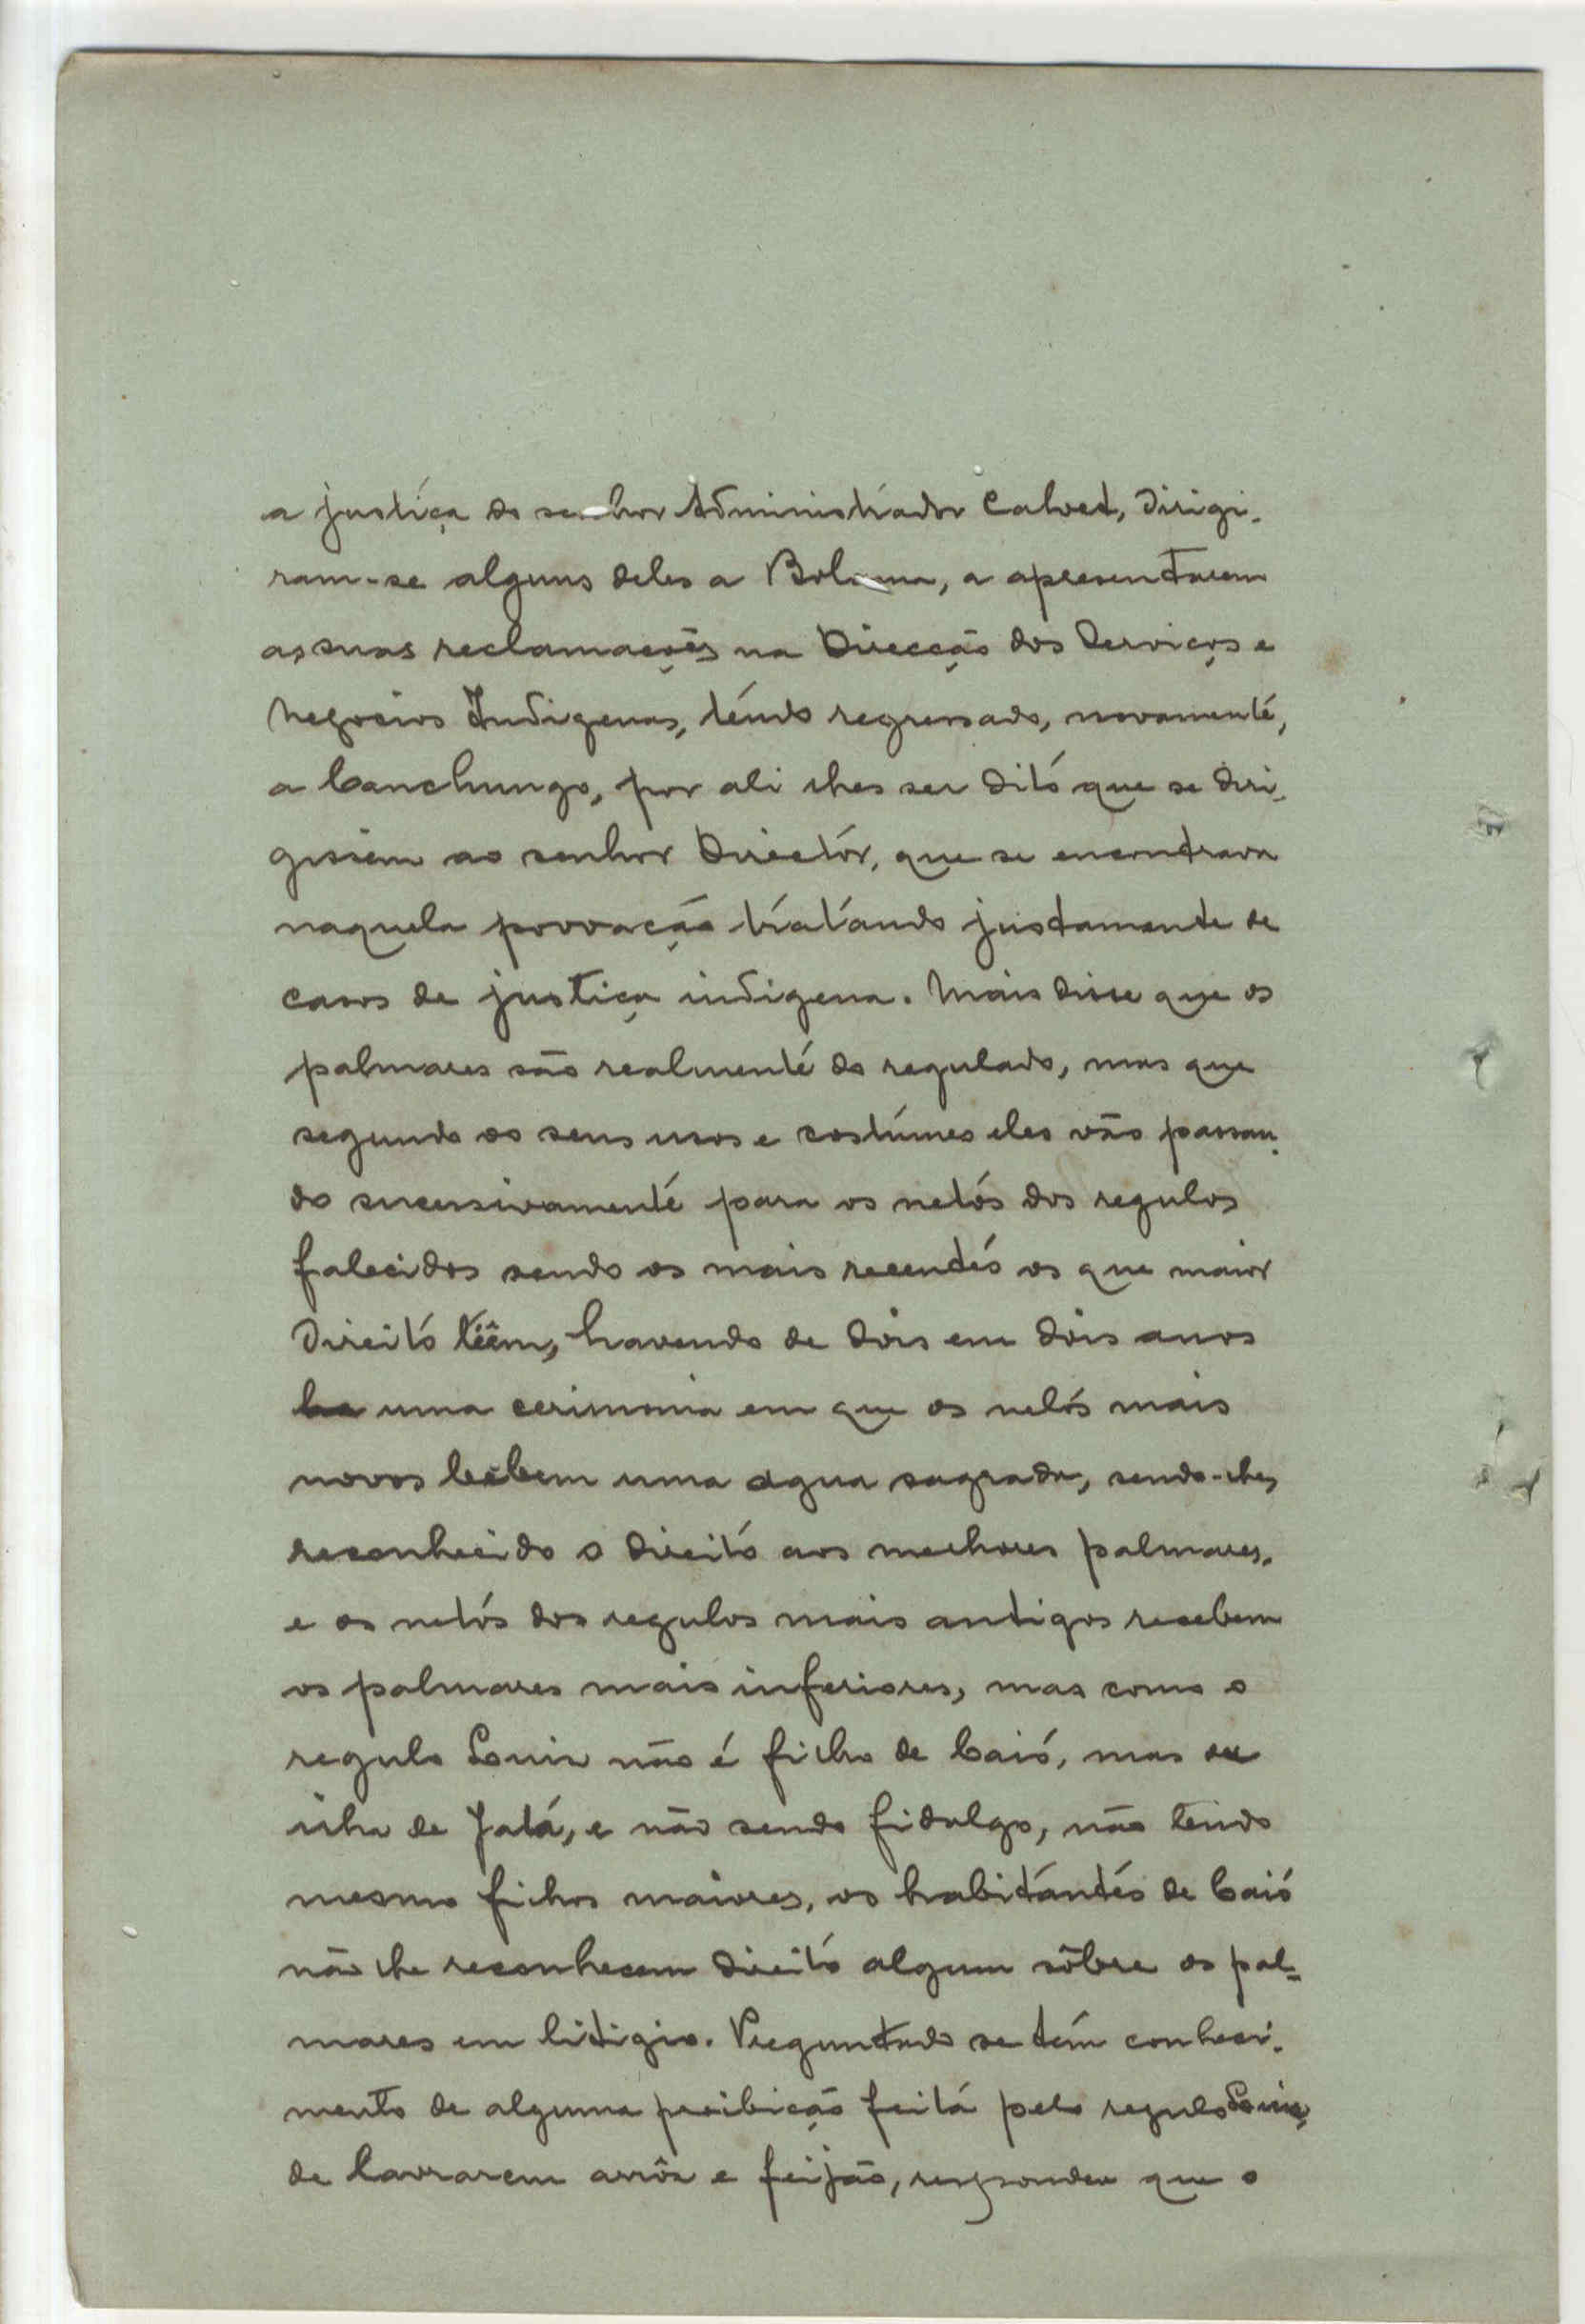 a justiça do senhor Administrador Calvet, dirigi-
ram-se alguns deles a Bolama, a apresentarem
as suas reclamações na Direcção dos Serviços e
Negocios Indigenas, tendo regressado, novamente,
a Canchungo, por ali lhes ser dito que se diri-
gissem ao senhor Director, que se encontrava
naquela povoação tratando justamente de
casos de justiça indigena. Mais disse que os
palmares são realmente do regulado, mas que
segundo os seus usos e costumes eles vão passan-
do sucessivamente para os netos dos regulos
falecidos sendo os mais recentes os que maior
direito têem, havendo de dois em dois anos
ha uma cerimonia em que os netos mais
novos bebem uma agua sagrada, sendo-lhes
reconhecido o direito aos melhores palmares,
e os netos dos regulos mais antigos recebem
os palmares mais inferiores, mas como o
regulo Louis não é filho de Caió, mas da
ilha de Jatá, e não sendo fidalgo, não tendo
mesmo filhos maiores, os habitantes de Caió
não lhe reconhecem direito algum sôbre os pal-
mares em litigio. Preguntado se tem conheci-
mento de alguma proibição feita pelo regulo Louis,
de lavrarem arrôz e feijão, respondeu que o